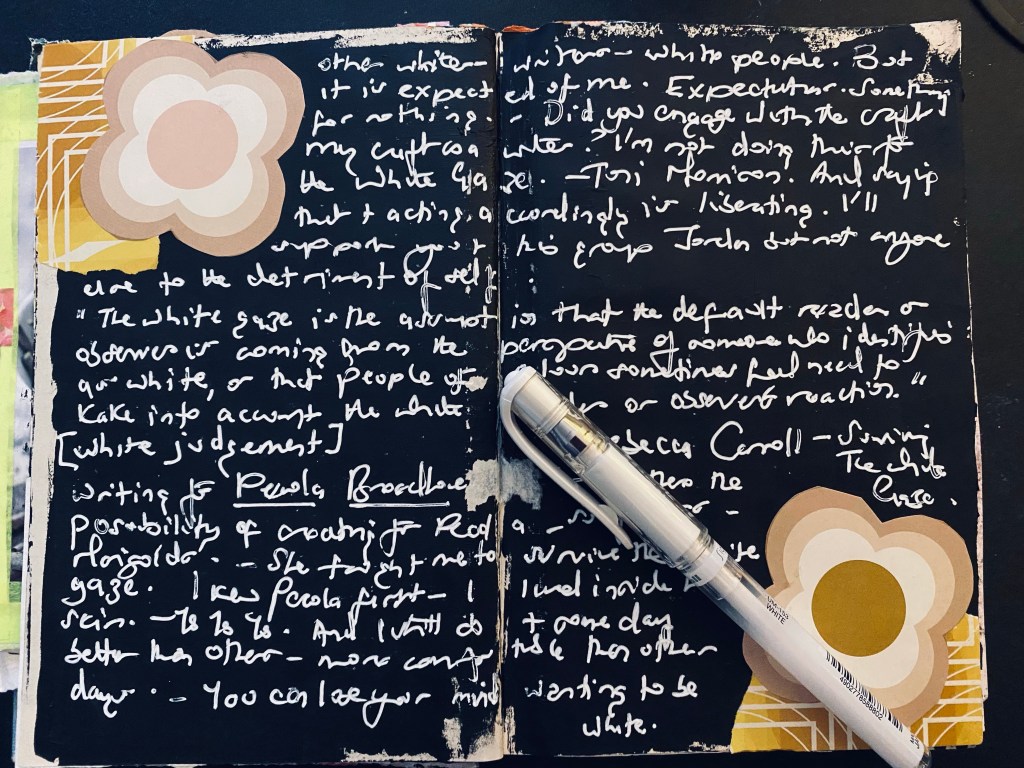 other white - writers - white people. But
it is expected of me. Expectation. Something
for nothing. - Did you engage with the craft
my craft as a writer? I'm not doing this for
the White Gaze. - Toni Morrison. And saying
that + acting accordingly is liberating. I'll
support your this group Jordan but not anyone
else to the detriment of self
" The white gaze is the assumption is that the default reader or
observer is coming from the perspective of someone who identifies
as white, or that people of colour sometimes feel need to
take into account the white or observer reaction. "
[white judgement] Rebecca Carroll - Surviving
The white
Gaze.
Writing for Pecola Breedlove
possibility of creating for Pecola -
Marigolds. - She taught me to survive the white
gaze. I knew Pecola first - I lived inside
skin. - Yo Yo Yo. And I still do + some day
better than other - more comfortable than other
days. - You can lose your mind wanting to be
white.
UM-153
WHITE
4902778588802